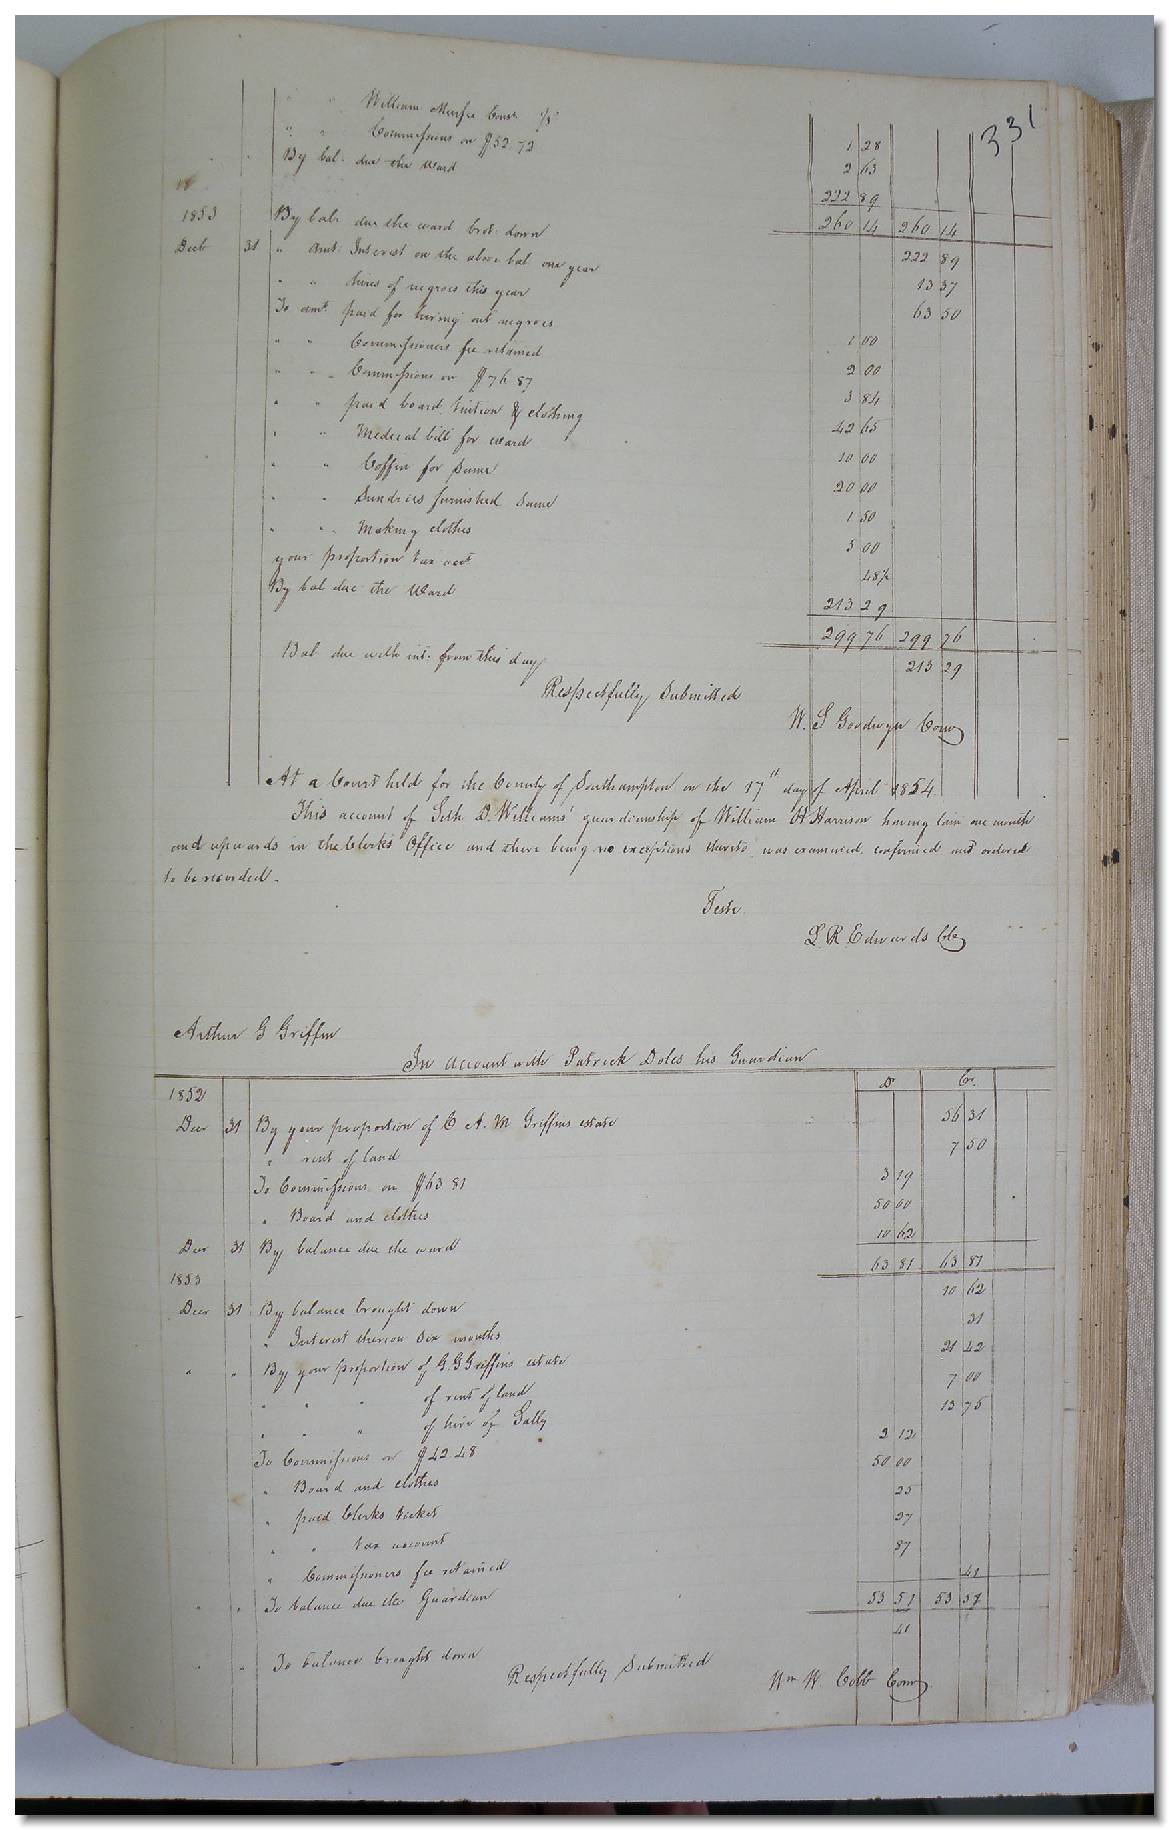 331
" " William Murfee Const
" " Commissions on $52.72 1 28
By bal. due the Ward 2 63
222 89
260 14 260 14
1853 By bals. due the ward brot. down 222 89
Decb 31 " amt. Interest on the above bal one year 13 37
" " hires of negroes this year 63 50
To amt. paid for hiring out negroes 1 00
" " Commissioners fee retained 2 00
" " Commissions on $76.87 3 84
" " paid board tuition & clothing 42 65
" " Medical bill for ward 10 00
" " Coffin for Same 20 00
" " Sundries furnished Same 1 50
" " Making clothes
your proportion tax acct 48½
By bal due the Ward 213 29
299 76 299 76
Bal due with int. from this day 213 29
Respectfully Submitted
W. S Goodwyn Comr
At a Court held for the County of Southampton on the 17th day of April 1854
This account of Seth D. Williams' guardianship of William H Harrison having lain one month
and upwards in the Clerks Office and there being no exceptions thereto was examined, confirmed and ordered
to be recorded.
Teste
L. R. Edwards Clk
Arthur G Griffin
In account with Patrick Doles his Guardian
1852 Dr Cr.
Decr 31 By your proportion of C A. M Griffins estate 56 31
" rent of land 7 50
To Commissions on $63 81 3 19
" Board and clothes 50 00
Decr 31 By balance due the ward 10 62
63 81 63 81
1853
Decr 31 By balance brought down 10 62
" Interest thereon Six months 31
" " By your proportion of G. G Griffins estate 21 42
" " " of rent of land 7 00
" " " of hire of Sally 13 75
To Commissions on $42.48 2 12
" Board and clothes 50 00
" paid Clerks ticket 25
" " tax account 27
" Commissioners fee retained 87
" " To balance due the Guardian 41
53 51 53 51
" " To balance brought down 41
Respectfully Submitted
Wm W. Cobb Comr